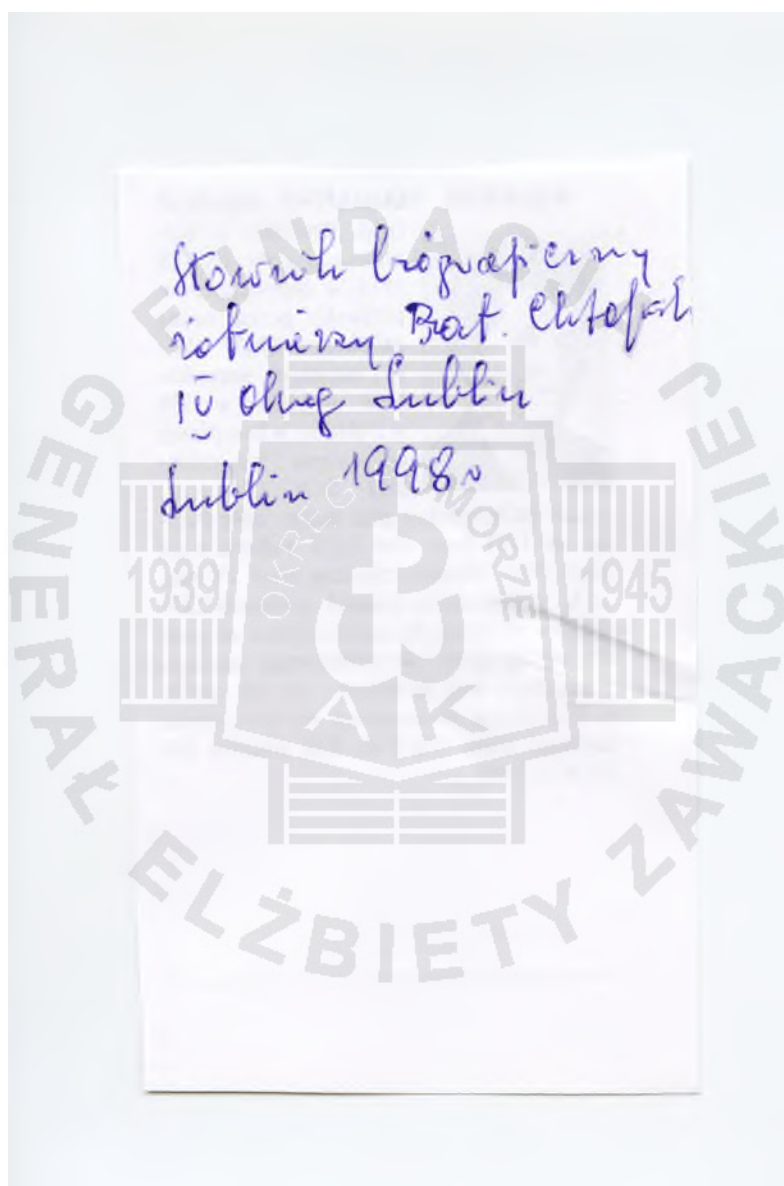 Słownik biograficzny
żołnierzy Bat. Chłopskich
IV okręg Lublin
Lublin 1998 r
FUNDACJA
GENERAŁ ELŻBIETY ZAWACKIEJ
OKRĘG POMORZE
1939 1945
AK